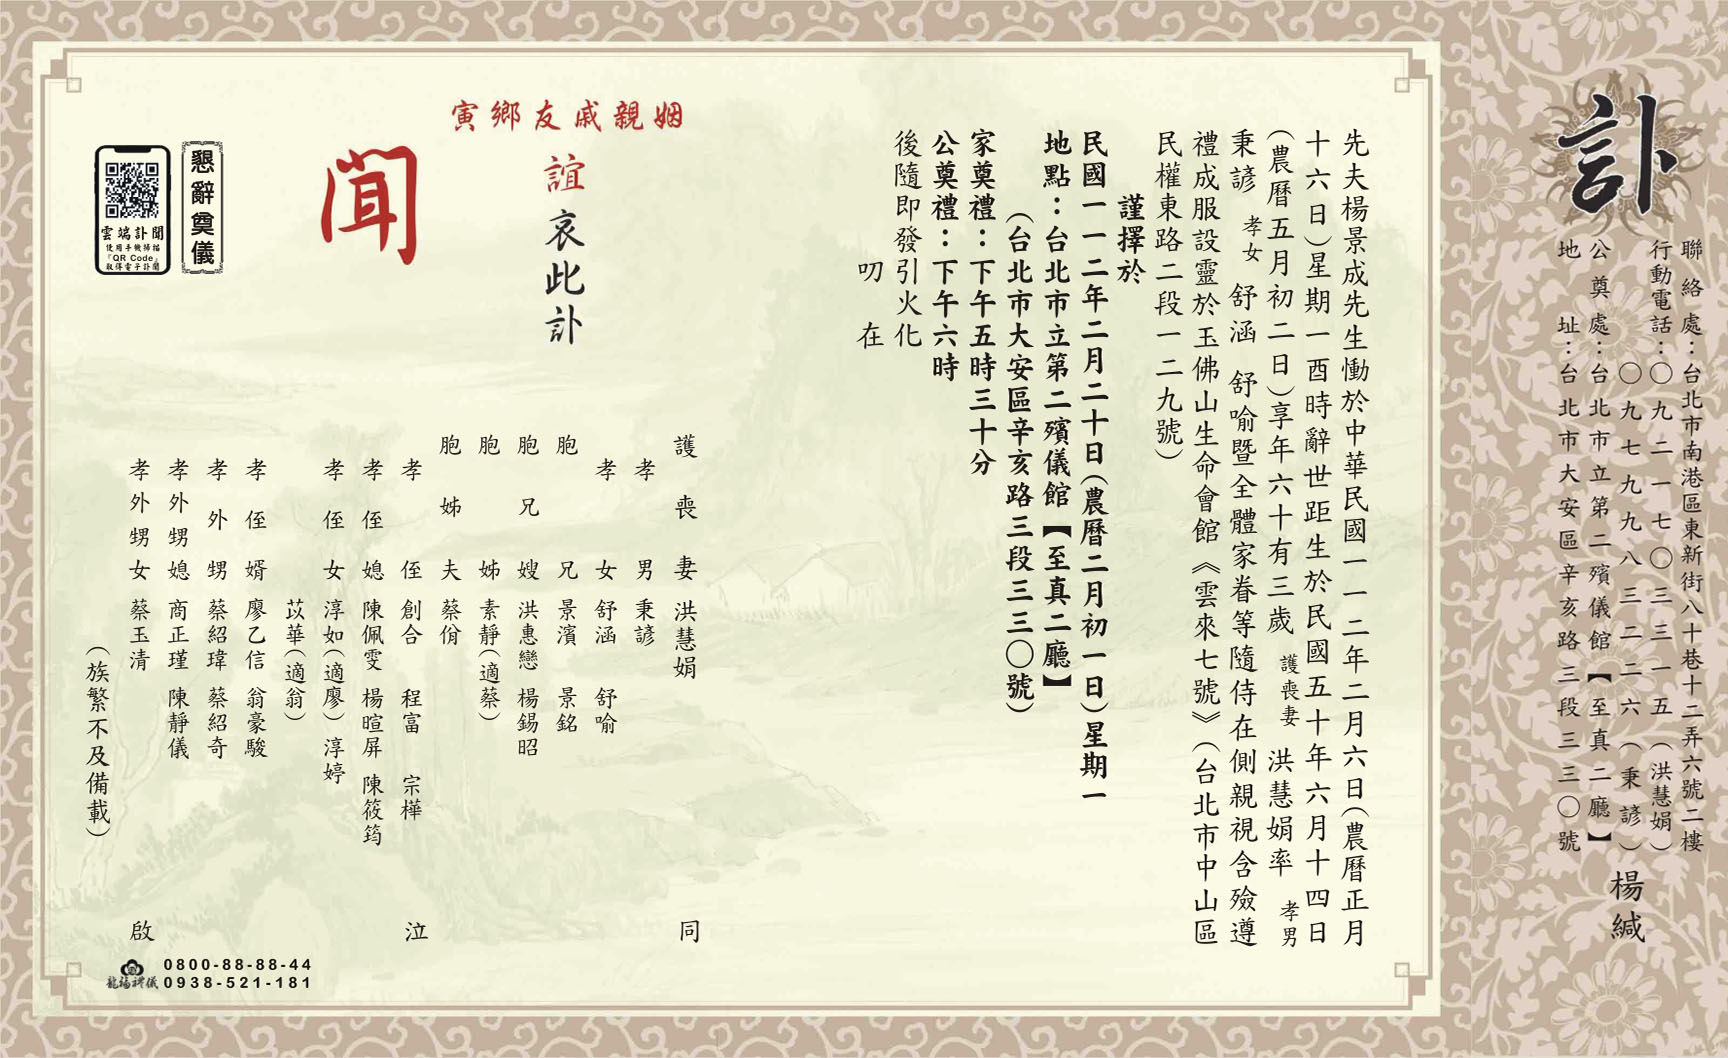 訃
聯絡處：台北市南港區東新街八十巷十二弄六號二樓
行動電話：〇九二一七〇三三一五（洪慧娟）
〇九七九九八三二二六（秉諺）
公奠處：台北市立第二殯儀館【至真二廳】
地址：台北市大安區辛亥路三段三三〇號
楊緘
先夫楊景成先生慟於中華民國一一二年二月六日（農曆正月
十六日）星期一酉時辭世距生於民國五十年六月十四日
（農曆五月初二日）享年六十有三歲 護喪妻 洪慧娟率 孝男
秉諺 孝女 舒涵 舒喻暨全體家眷等隨侍在側親視含殮遵
禮成服設靈於玉佛山生命會館《雲來七號》（台北市中山區
民權東路二段一二九號）
謹擇於
民國一一二年二月二十日（農曆二月初一日）星期一
地點：台北市立第二殯儀館【至真二廳】
（台北市大安區辛亥路三段三三〇號）
家奠禮：下午五時三十分
公奠禮：下午六時
後隨即發引火化
叨在
姻親戚友鄉寅
誼哀此訃
聞
護喪妻 洪慧娟
孝男 秉諺
孝女 舒涵 舒喻
胞兄 景濱 景銘
胞兄嫂 洪惠戀 楊錫昭
胞姊 素靜（適蔡）
胞姊夫 蔡佾
孝侄 創合 程富 宗樺
孝侄媳 陳佩雯 楊暄屏 陳筱筠
孝侄女 淳如（適廖）淳婷
苡華（適翁）
孝侄婿 廖乙信 翁豪駿
孝外甥 蔡紹瑋 蔡紹奇
孝外甥媳 商正瑾 陳靜儀
孝外甥女 蔡玉清
（族繁不及備載）
同泣啟
懇辭奠儀
雲端訃聞
使用手機掃描
『QR Code』
取得電子訃聞
龍福禮儀
0800-88-88-44
0938-521-181